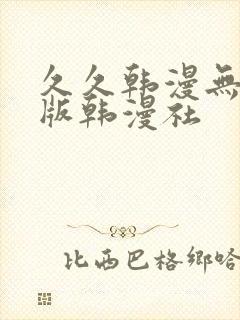 久久韩漫無
版韩漫社
比西巴格鄉哈